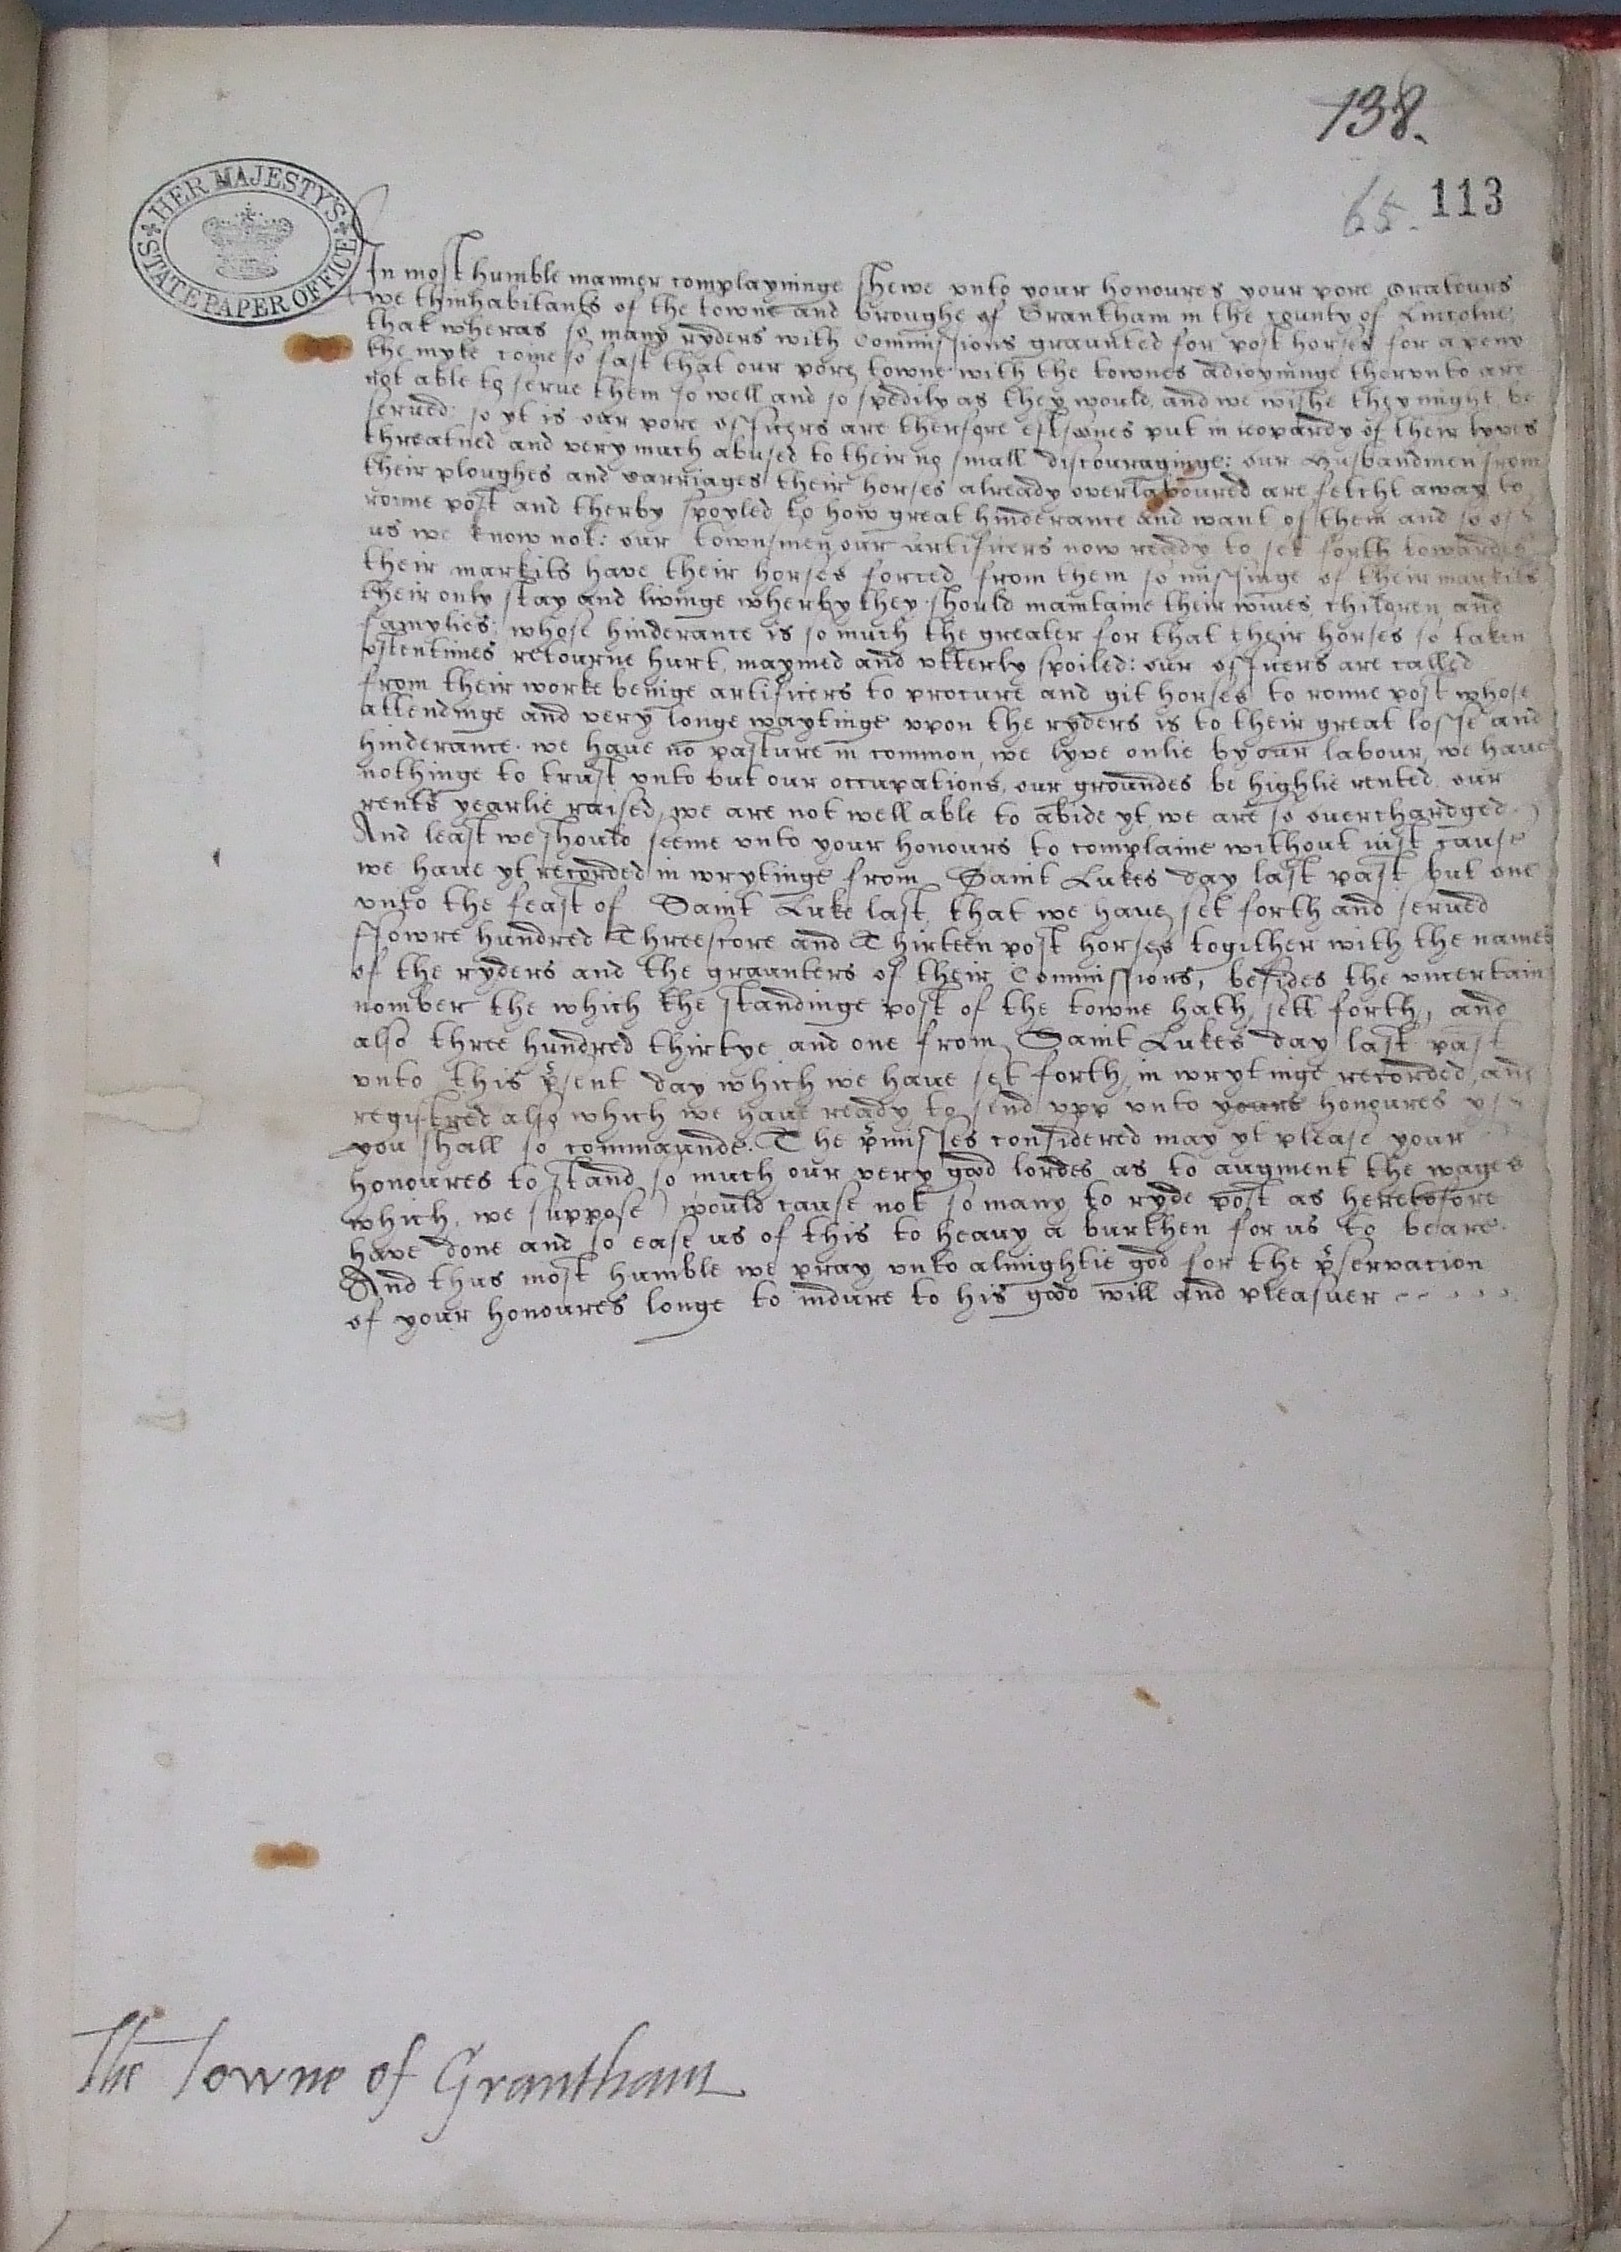 138.
65. 113
HER MAJESTY'S
STATE PAPER OFFICE
In most humble manner complayninge shewe vnto your honoures your pore Orateurs
we thinhabitants of the towne and broughe of Grantham in the county of Lincolne,
that wheras so many ryders with Commissions graunted for post horses for a peny
the myle come so fast that our pore towne with the townes adioyninge thervnto are
not able to serue them so well and so spedily as they would, and we wishe they might be
served: so yt is our pore officers are therfore eftsones put in ieopardy of their lyves
threatned and very much abused to their no small discouraginge: our Husbandmen from
their ploughes and carriages their horses already overlaboured are fetcht away to
ronne post and therby spoyled to how great hinderance and want of them and so of
us we know not: our townsmen our artificers now ready to set forth towardes
their markits have their horses forced from them so missinge of their markits
their only stay and livinge wherby they should maintaine their wives, children and
famylies; whose hinderance is so much the greater for that their horses so taken
oftentimes retourne hurt, maymed and vtterly spoiled: our officers are called
from their worke beinge artificers to procure and git horses to ronne post whose
attendinge and very longe waytinge vpon the ryders is to their great losse and
hinderance. we have no pasture in common, we lyve onlie by our labour, we have
nothinge to trust vnto but our occupations, our groundes be highlie rented, our
rents yearlie raised, we are not well able to abide yt we are so overchardged.
And least we should seeme vnto your honours to complaine without iust cause
we haue yt recorded in wrytinge from Saint Lukes day last past but one
vnto the feast of Saint Luke last, that we have set forth and served
ffowre hundred Threescore and Thirteen post horses togither with the names
of the ryders and the graunters of their Commissions, besides the vncertain
nomber the which the standinge post of the towne hath sett forth, and
also three hundred thirtye and one from Saint Lukes day last past
vnto this p̄sent day which we haue set forth in wrytinge recorded, and
registred also which we haue ready to send vpp vnto yours honoures yf
you shall so commaunde. The p̄misses considered may yt please your
honoures to stand so much our very good lordes as to augment the wages
which (we suppose) would cause not so many to ryde post as heretofore
have done and so ease us of this to heavy a burthen for us to beare.
And thus most humble we pray vnto almightie god for the p̄servacion
of your honoures longe to indure to his good will and pleasuer
The Towne of Grantham